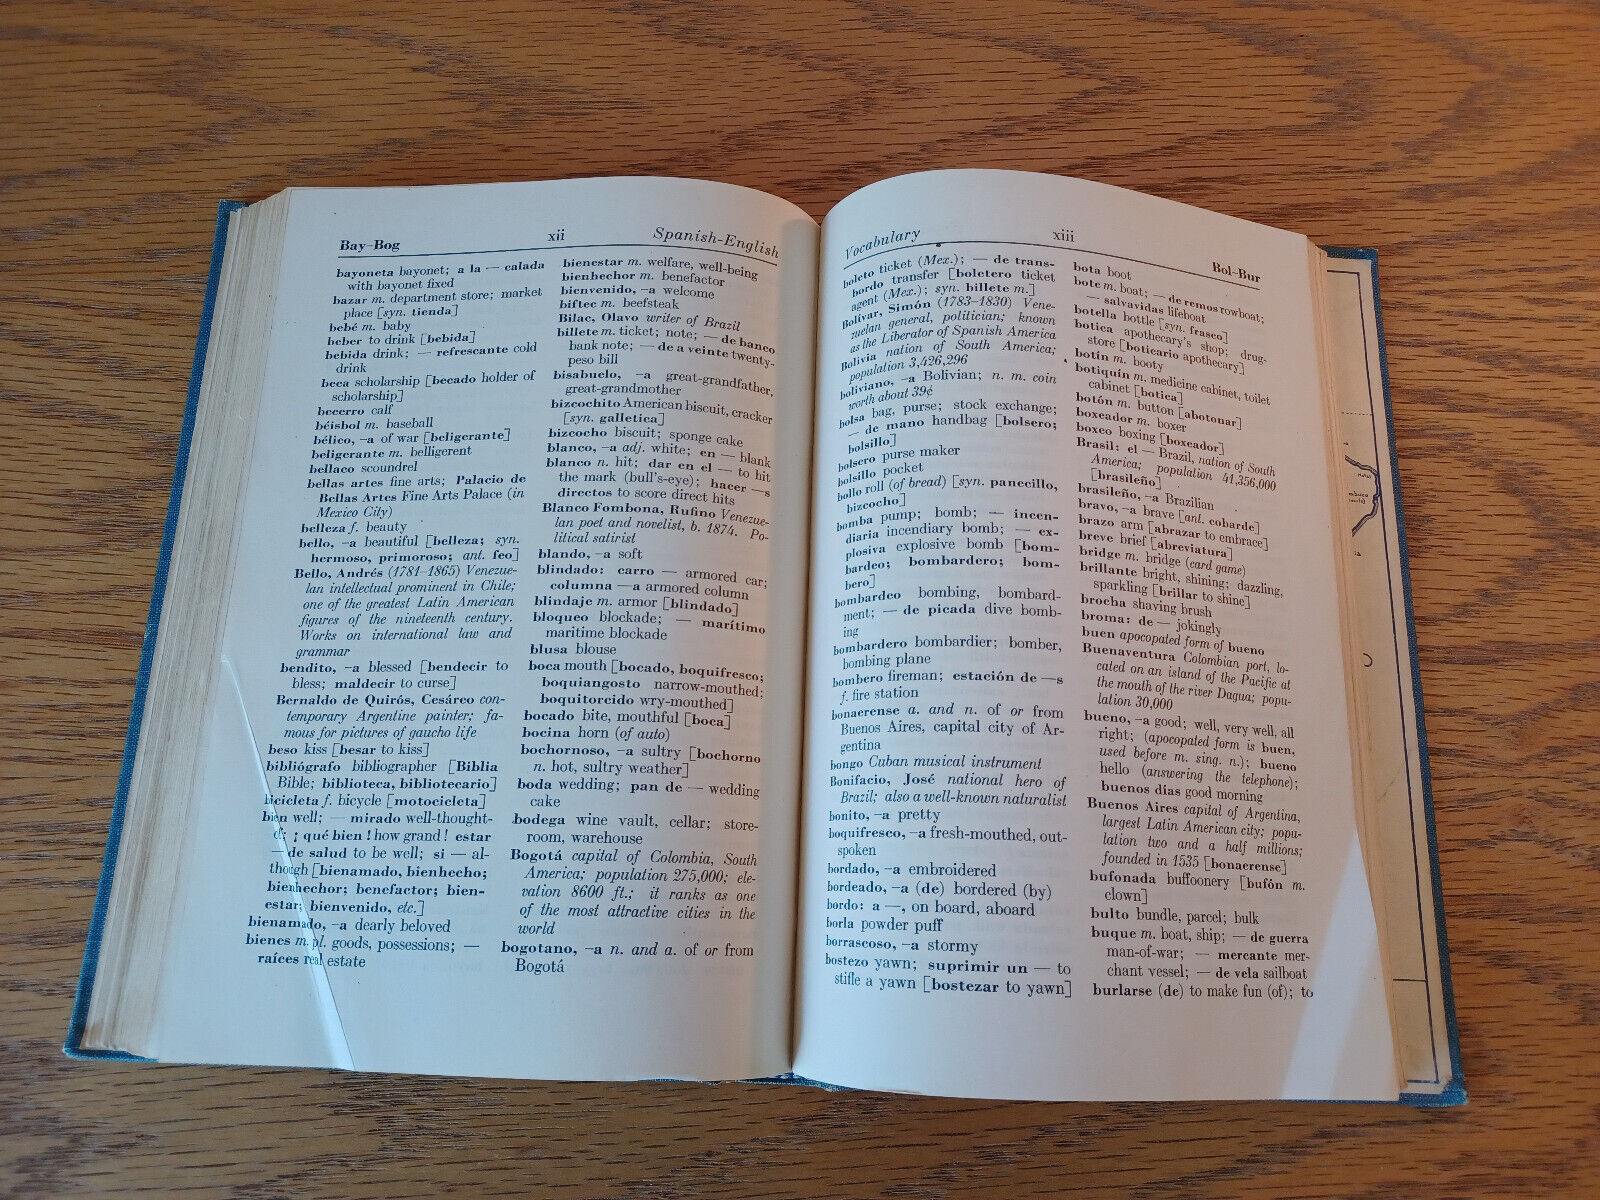 Bay–Bog
xii
Spanish-English
bayoneta bayonet; a la — calada
with bayonet fixed
bazar m. department store; market
place [syn. tienda]
bebé m. baby
beber to drink [bebida]
bebida drink; — refrescante cold
drink
beca scholarship [becado holder of
scholarship]
becerro calf
béisbol m. baseball
bélico, –a of war [beligerante]
beligerante m. belligerent
bellaco scoundrel
bellas artes fine arts; Palacio de
Bellas Artes Fine Arts Palace (in
Mexico City)
belleza f. beauty
bello, –a beautiful [belleza; syn.
hermoso, primoroso; ant. feo]
Bello, Andrés (1781–1865) Venezue-
lan intellectual prominent in Chile;
one of the greatest Latin American
figures of the nineteenth century.
Works on international law and
grammar
bendito, –a blessed [bendecir to
bless; maldecir to curse]
Bernaldo de Quirós, Cesáreo con-
temporary Argentine painter; fa-
mous for pictures of gaucho life
beso kiss [besar to kiss]
bibliógrafo bibliographer [Biblia
Bible; biblioteca, bibliotecario]
bicicleta f. bicycle [motocicleta]
bien well; — mirado well-thought-
of; ¡ qué bien ! how grand ! estar
— de salud to be well; si — al-
though [bienamado, bienhecho;
bienhechor; benefactor; bien-
estar; bienvenido, etc.]
bienamado, –a dearly beloved
bienes m. pl. goods, possessions; —
raíces real estate
bienestar m. welfare, well-being
bienhechor m. benefactor
bienvenido, –a welcome
biftec m. beefsteak
Bilac, Olavo writer of Brazil
billete m. ticket; note; — de banco
bank note; — de a veinte twenty-
peso bill
bisabuelo, –a great-grandfather,
great-grandmother
bizcochito American biscuit, cracker
[syn. galletica]
bizcocho biscuit; sponge cake
blanco, –a adj. white; en — blank
blanco n. hit; dar en el — to hit
the mark (bull's-eye); hacer —s
directos to score direct hits
Blanco Fombona, Rufino Venezue-
lan poet and novelist, b. 1874. Po-
litical satirist
blando, –a soft
blindado: carro — armored car;
columna —a armored column
blindaje m. armor [blindado]
bloqueo blockade; — marítimo
maritime blockade
blusa blouse
boca mouth [bocado, boquifresco;
boquiangosto narrow-mouthed;
boquitorcido wry-mouthed]
bocado bite, mouthful [boca]
bocina horn (of auto)
bochornoso, –a sultry [bochorno
n. hot, sultry weather]
boda wedding; pan de — wedding
cake
bodega wine vault, cellar; store-
room, warehouse
Bogotá capital of Colombia, South
America; population 275,000; ele-
vation 8600 ft.; it ranks as one
of the most attractive cities in the
world
bogotano, –a n. and a. of or from
Bogotá
Vocabulary
xiii
Bol–Bur
boleto ticket (Mex.); — de trans-
bordo transfer [boletero ticket
agent (Mex.); syn. billete m.]
Bolívar, Simón (1783–1830) Vene-
zuelan general, politician; known
as the Liberator of Spanish America
Bolivia nation of South America;
population 3,426,296
boliviano, –a Bolivian; n. m. coin
worth about 39¢
bolsa bag, purse; stock exchange;
— de mano handbag [bolsero;
bolsillo]
bolsero purse maker
bolsillo pocket
bollo roll (of bread) [syn. panecillo,
bizcocho]
bomba pump; bomb; — incen-
diaria incendiary bomb; — ex-
plosiva explosive bomb [bom-
bardeo; bombardero; bom-
bero]
bombardeo bombing, bombard-
ment; — de picada dive bomb-
ing
bombardero bombardier; bomber,
bombing plane
bombero fireman; estación de —s
f. fire station
bonaerense a. and n. of or from
Buenos Aires, capital city of Ar-
gentina
bongo Cuban musical instrument
Bonifacio, José national hero of
Brazil; also a well-known naturalist
bonito, –a pretty
boquifresco, –a fresh-mouthed, out-
spoken
bordado, –a embroidered
bordeado, –a (de) bordered (by)
bordo: a —, on board, aboard
borla powder puff
borrascoso, –a stormy
bostezo yawn; suprimir un — to
stifle a yawn [bostezar to yawn]
bota boot
bote m. boat; — de remos rowboat;
— salvavidas lifeboat
botella bottle [syn. frasco]
botica apothecary's shop; drug-
store [boticario apothecary]
botín m. booty
botiquín m. medicine cabinet, toilet
cabinet [botica]
botón m. button [abotonar]
boxeador m. boxer
boxeo boxing [boxeador]
Brasil: el — Brazil, nation of South
America; population 41,356,000
[brasileño]
brasileño, –a Brazilian
bravo, –a brave [ant. cobarde]
brazo arm [abrazar to embrace]
breve brief [abreviatura]
bridge m. bridge (card game)
brillante bright, shining; dazzling,
sparkling [brillar to shine]
brocha shaving brush
broma: de — jokingly
buen apocopated form of bueno
Buenaventura Colombian port, lo-
cated on an island of the Pacific at
the mouth of the river Dagua; popu-
lation 30,000
bueno, –a good; well, very well, all
right; (apocopated form is buen,
used before m. sing. n.); bueno
hello (answering the telephone);
buenos días good morning
Buenos Aires capital of Argentina,
largest Latin American city; popu-
lation two and a half millions;
founded in 1535 [bonaerense]
bufonada buffoonery [bufón m.
clown]
bulto bundle, parcel; bulk
buque m. boat, ship; — de guerra
man-of-war; — mercante mer-
chant vessel; — de vela sailboat
burlarse (de) to make fun (of); to